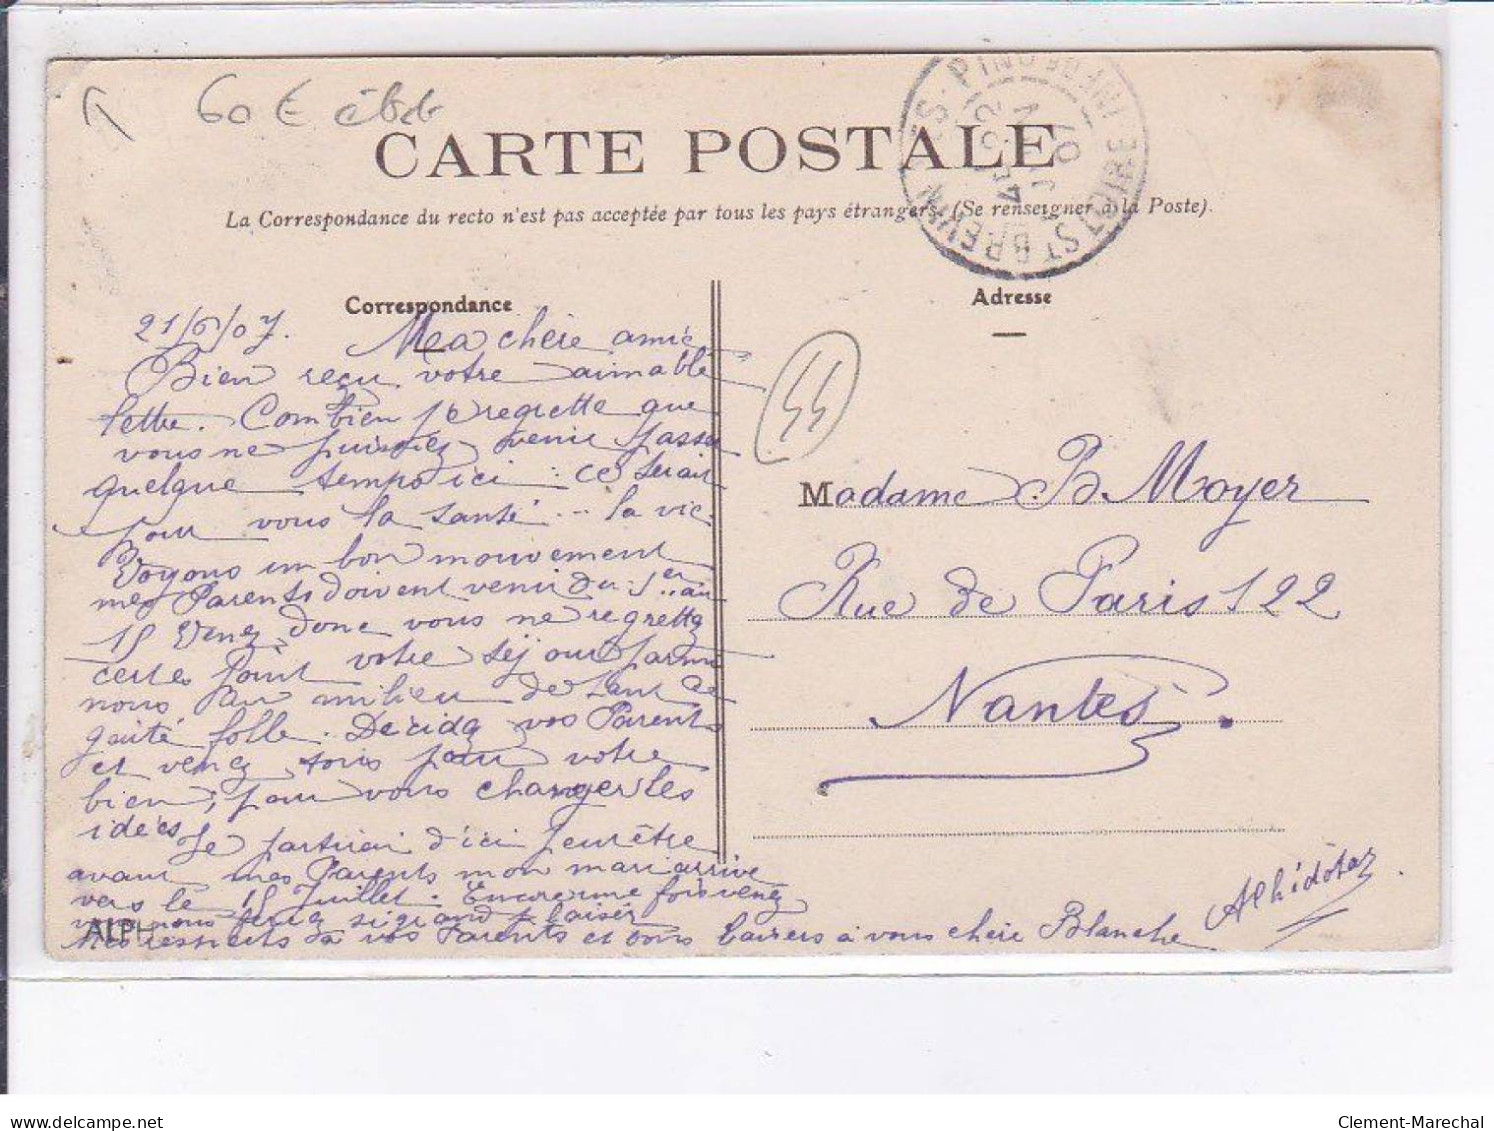 60 €
CARTE POSTALE
La Correspondance du recto n'est pas acceptée par tous les pays étrangers. (Se renseigner à la Poste).
ST BREVIN LES-PINS LOIRE INFRE
Correspondance
Adresse
21/6/07. Ma chère amie
Bien reçu votre aimable
lettre. Combien je regrette que
vous ne puissiez venir passer
quelque temps ici : ce serait
pour vous la santé ... la vie.
Voyons un bon mouvement
mes Parents doivent venir du 1er au
15 Venez donc vous ne regrettez
certes point votre séjour parmi
nous au milieu de tant de
gaité folle. Décidez vos Parents
et venez tous pour votre
bien, pour vous changer les
idées
Je partirai d'ici peut être
avant mes Parents mon mari arrive
vers le 15 Juillet. Encore une fois venez
vous nous ferez si grand plaisir
Mes respects à vos Parents et bons baisers à vous chère Blanche
ALPH
44
Madame B. Moyer
Rue de Paris 122
Nantes.
Clement-Marechal
delcampe.net